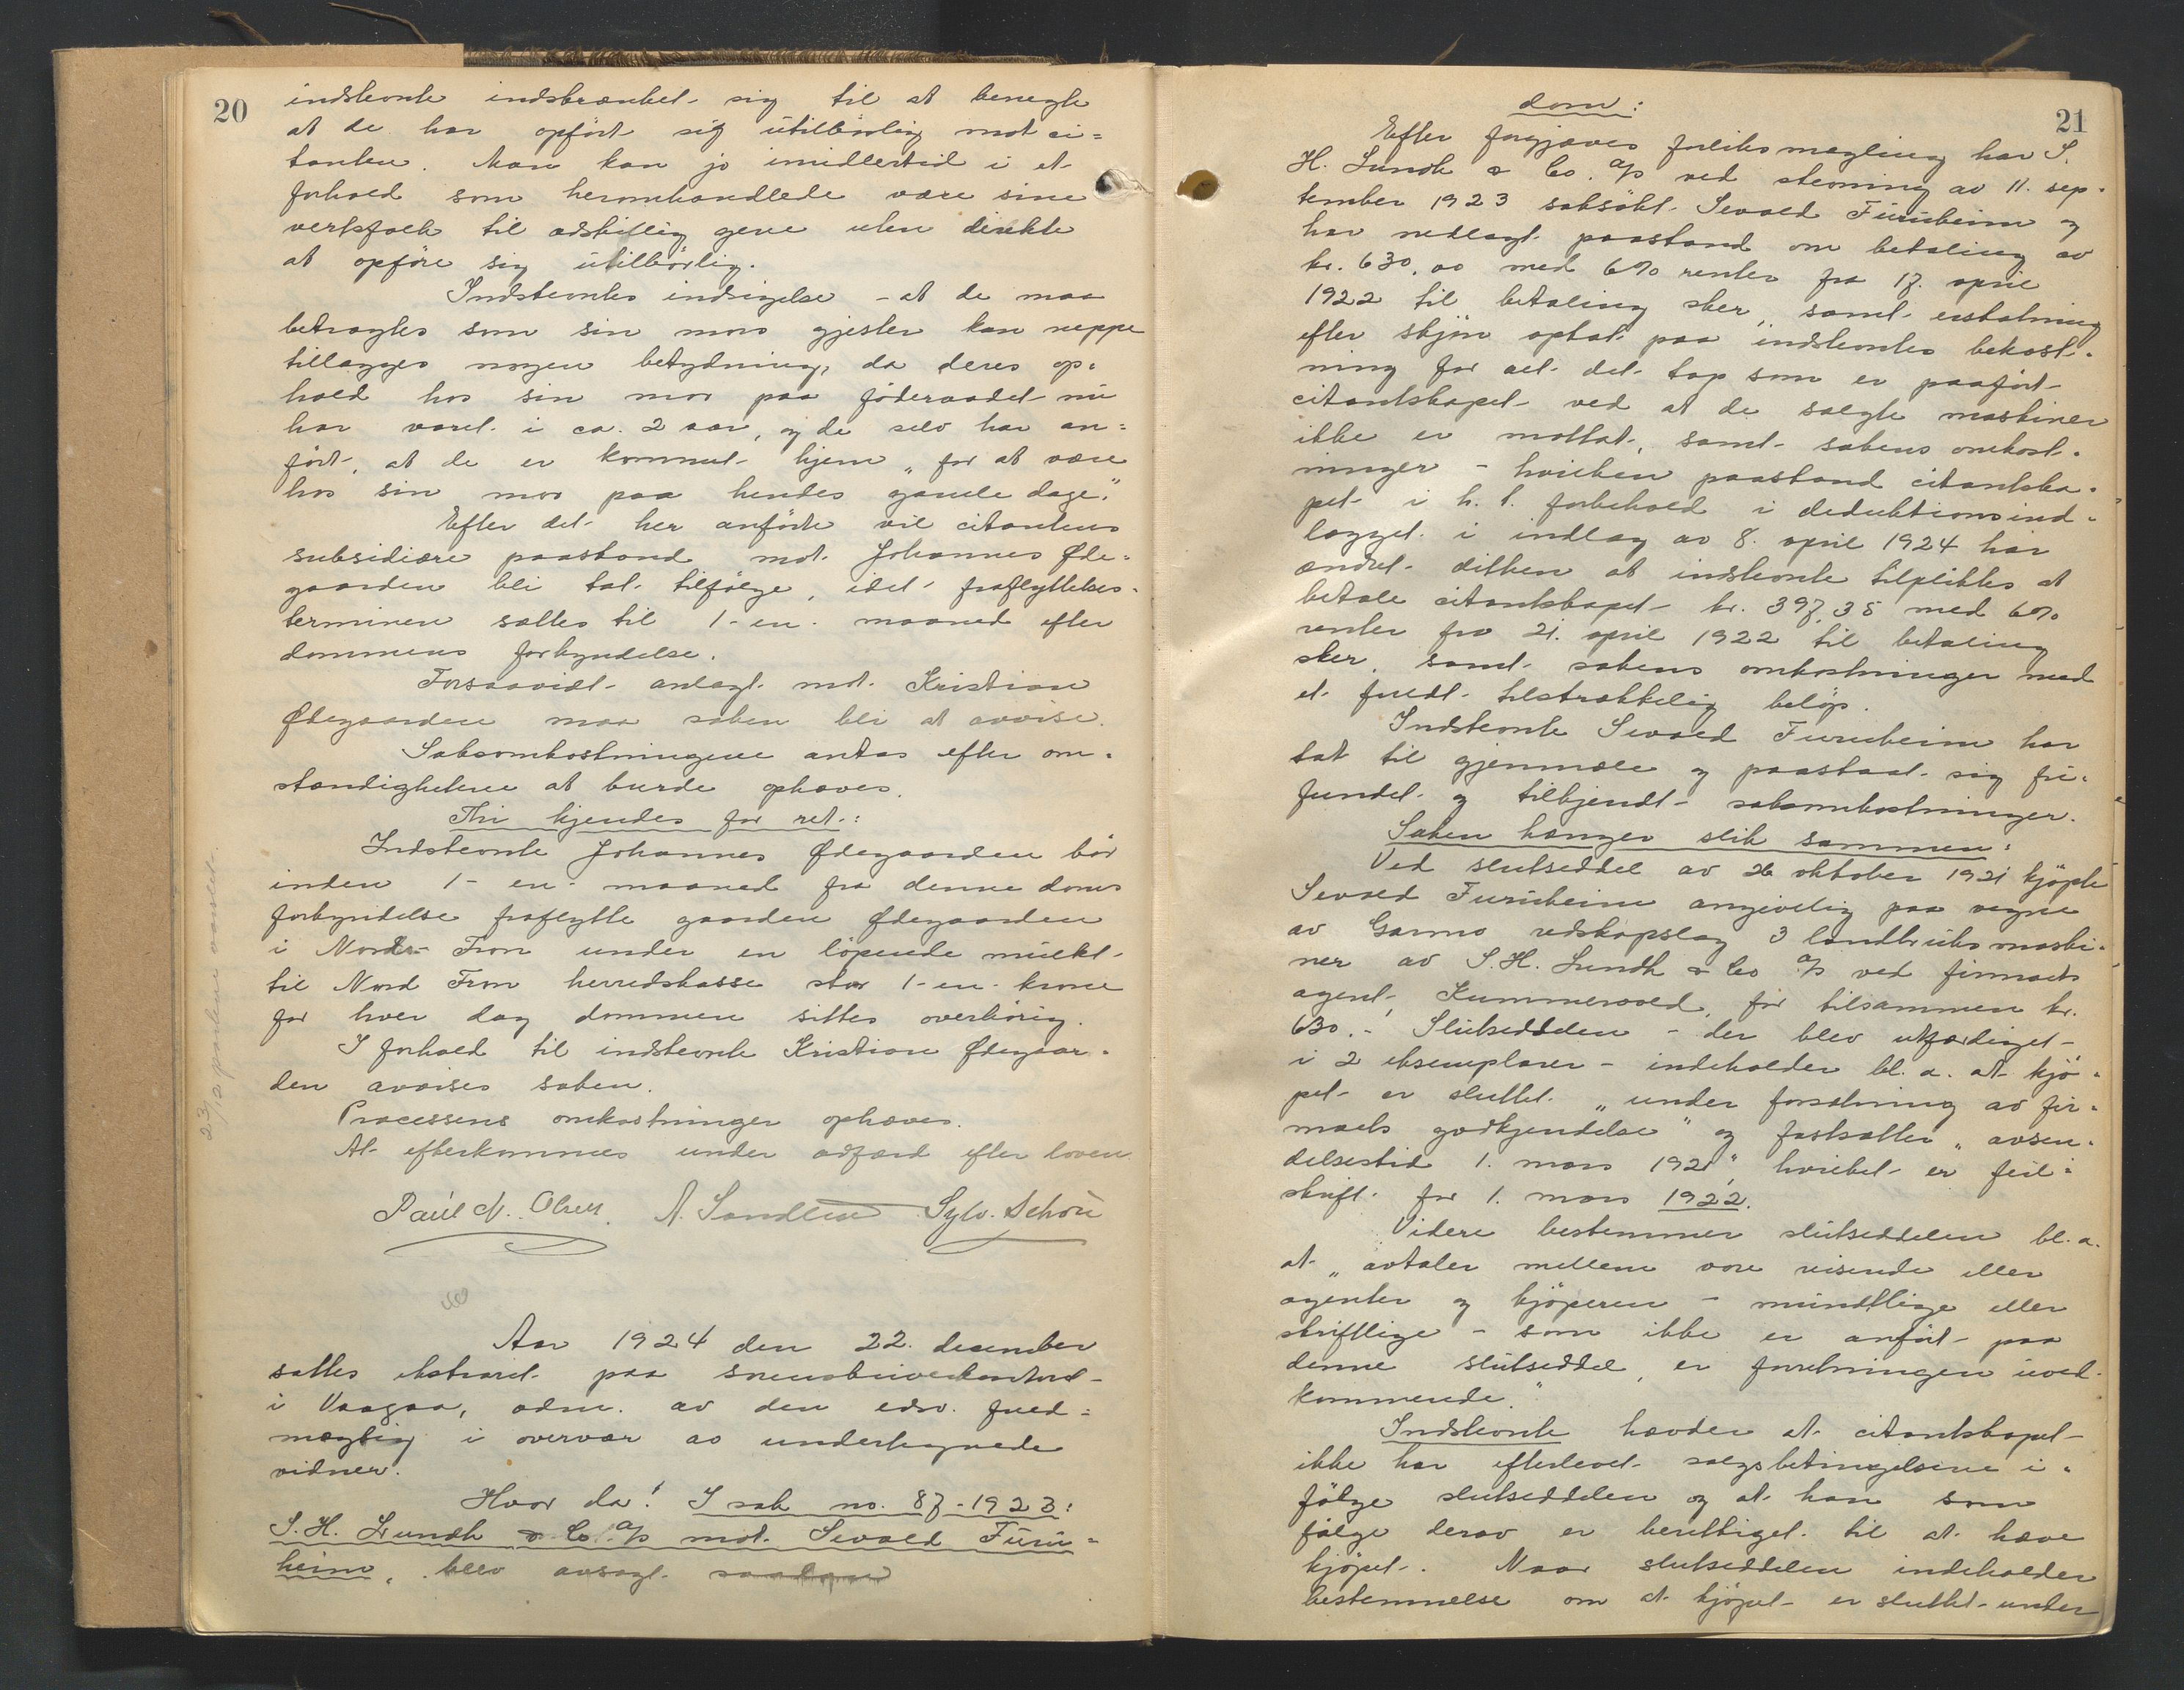 20
indstevnte indskrænket sig til at benegte
at de har opført sig utilbørlig mot ci=
tanten. Man kan jo imidlertid i et
forhold som heromhandlede være sine
verksfolk til adskillig gene uten direkte
at opføre sig utilbørlig.
Indstevntes indsigelse - at de maa
betragtes som sin mors gjester kan neppe
tillægges nogen betydning, da deres op=
hold hos sin mor paa føderaadet nu
har varet i ca. 2 aar, og de selv har an=
ført, at de er kommet hjem „for at være
hos sin mor paa hendes gamle dage."
Efter det her anførte vil citantens
subsidiære paastand mot Johannes Øde=
gaarden bli tat tilfølge, idet fraflyttelses-
terminen sættes til 1-en- maaned efter
dommens forkyndelse.
Forsaavidt anlagt mot Kristian
Ødegaarden maa saken bli at avvise.
Saksomkostningene antas efter om=
stændighetene at burde ophæves.
Thi kjendes for ret:
Indstevnte Johannes Ødegaarden bør
inden 1-en- maaned fra denne doms
forkyndelse fraflytte gaarden Ødegaarden
i Nord-Fron under en løpende mulkt
til Nord Fron herredskasse stor 1-en- krone
for hver dag dommen sittes overhørig.
I forhold til indstevnte Kristian Ødegaar=
den avvises saken.
Processens omkostninger ophæves.
At efterkommes under adfærd efter loven.
Paul N. Olsen. A. Sandlien Sylv. Schou
Aar 1924 den 22. december
sattes ekstraret paa sorenskriverkontoret
i Vaagaa, adm. av den edsv. fuld=
mægtig i overvær av undertegnede
vidner.
Hvor da! I sak no. 87-1923:
S. H. Lundh & Co. A/S mot Sevald Furu=
heim, blev avsagt saadan
21
dom:
Efter forgjæves forliksmægling har S.
H. Lundh & Co. A/S ved stevning av 11. sep=
tember 1923 saksøkt Sevald Furuheim og
har nedlagt paastand om betaling av
kr. 630,00 med 6% renter fra 17. april
1922 til betaling sker, samt erstatning
efter skjøn optat paa indstevntes bekost=
ning for alt det tap som er paaført
citantskapet ved at de solgte maskiner
ikke er mottat, samt sakens omkost=
ninger - hvilken paastand citantska=
pet i h. t. forbehold i deduktionsind=
lægget i indlæg av 8. april 1924 har
ændret dithen at indstevnte tilpliktes at
betale citantskapet kr. 397,35 med 6%
renter fra 21. april 1922 til betaling
sker, samt sakens omkostninger med
et fuldt tilstrækkelig beløp.
Indstevnte Sevald Furuheim har
tat til gjenmæle og paastaat sig fri=
fundet og tilkjendt saksomkostninger.
Saken hænger slik sammen:
Ved slutseddel av 26 oktober 1921 kjøpte
Sevald Furuheim angivelig paa vegne
av Garmo redskapslag 3 landbruksmaski=
ner av S. H. Lundh & Co A/S ved firmaets
agent, Kummervold, for tilsammen kr.
630.- Slutseddelen - der blev utfærdiget
i 2 eksemplarer - indeholder bl. a. at kjø=
pet er sluttet „under forsætning av fir=
maets godkjendelse" og fastsætter „avsen=
delsestid 1. mars 1921", hvilket er feil=
skrift for 1. mars 1922.
Videre bestemmer slutseddelen bl. a.
at „avtaler mellem vore reisende eller
agenter og kjøperen - mundtlige eller
skriftlige - som ikke er anført paa
denne slutseddel, er forretningen uved=
kommende."
Indstevnte hævder at citantskapet
ikke har efterlevet salgsbetingelsene i=
følge slutseddelen og at han som
følge derav er berettiget til at hæve
kjøpet. Naar slutseddelen indeholder
bestemmelse om at kjøpet er sluttet under